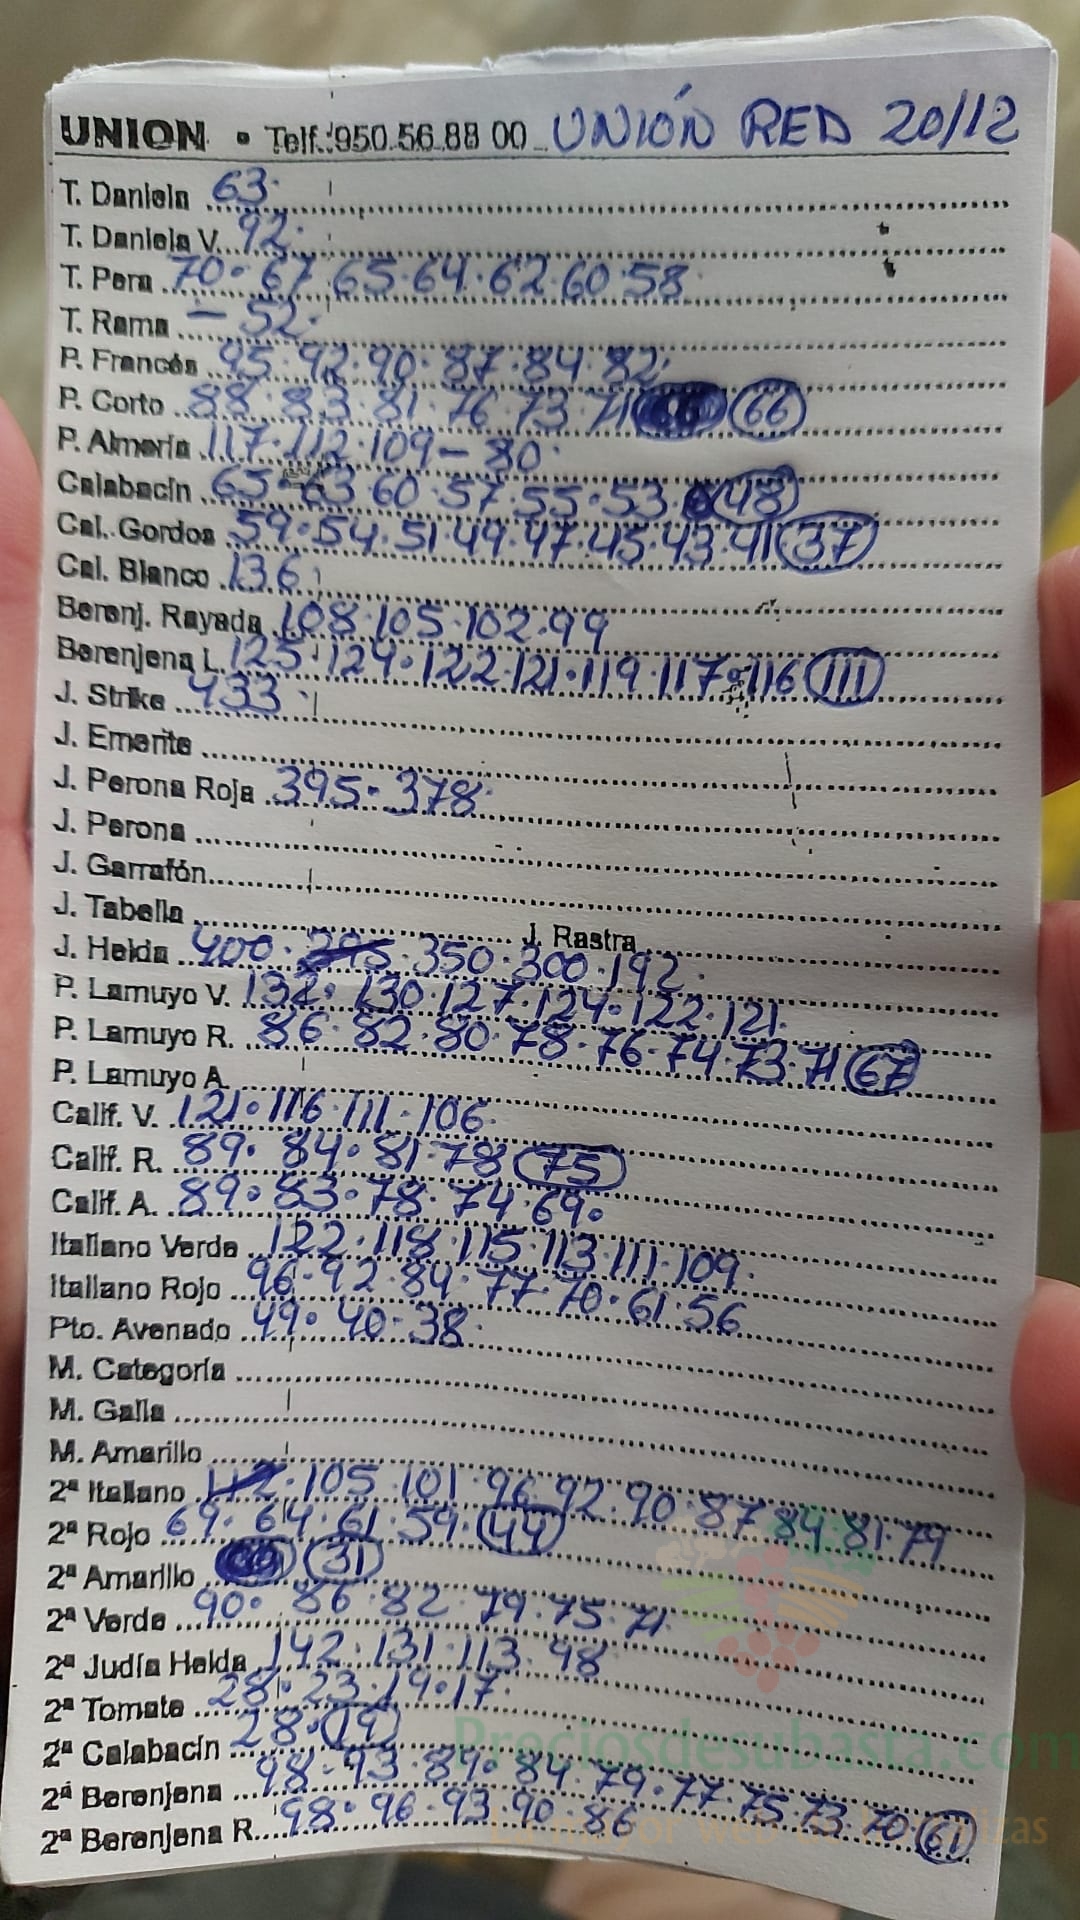 UNION • Telf.: 950.56.88 00 UNIÓN RED 20/12
T. Daniela 63.
T. Daniela V. 92.
T. Pera 70. 67 65. 64. 62. 60. 58
T. Rama – 52.
P. Francés 95. 92. 90. 87. 84. 82.
P. Corto 88. 83. 81. 76. 73. 71 66
P. Almería 117. 112. 109 – 80.
Calabacín 65. 63. 60. 57. 55. 53. 48
Cal. Gordos 59. 54. 51. 49. 47. 45. 43. 41 37
Cal. Blanco 136.
Berenj. Rayada 108. 105. 102. 99
Berenjena L. 125. 124. 122. 121. 119. 117. 116 111
J. Strike 433.
J. Emerite
J. Perona Roja 395. 378.
J. Perona
J. Garrafón
J. Tabella J. Rastra
J. Helda 400. 395. 350. 300. 192.
P. Lamuyo V. 132. 130. 127. 124. 122. 121.
P. Lamuyo R. 86. 82. 80. 78. 76. 74. 73. 71 67
P. Lamuyo A.
Calif. V. 121. 116. 111. 106.
Calif. R. 89. 84. 81. 78 75
Calif. A. 89. 83. 78. 74. 69.
Italiano Verde 122. 118. 115. 113. 111. 109.
Italiano Rojo 96. 92. 84. 77. 70. 61. 56
Pto. Avenado 49. 40. 38.
M. Categoría
M. Galla
M. Amarillo
2ª Italiano 112. 105. 101. 96. 92. 90. 87 84. 81. 79
2ª Rojo 69. 64. 61. 59. 44
2ª Amarillo 31
2ª Verde 90. 86. 82. 79. 75. 71.
2ª Judía Helda 142. 131. 113. 98
2ª Tomate 28. 23. 19. 17.
2ª Calabacín 28. 19
2ª Berenjena 98. 93. 89. 84. 79. 77. 75. 73. 70. 61
2ª Berenjena R. 98. 96. 93. 90. 86
Preciosdesubasta.com
La mayor web de